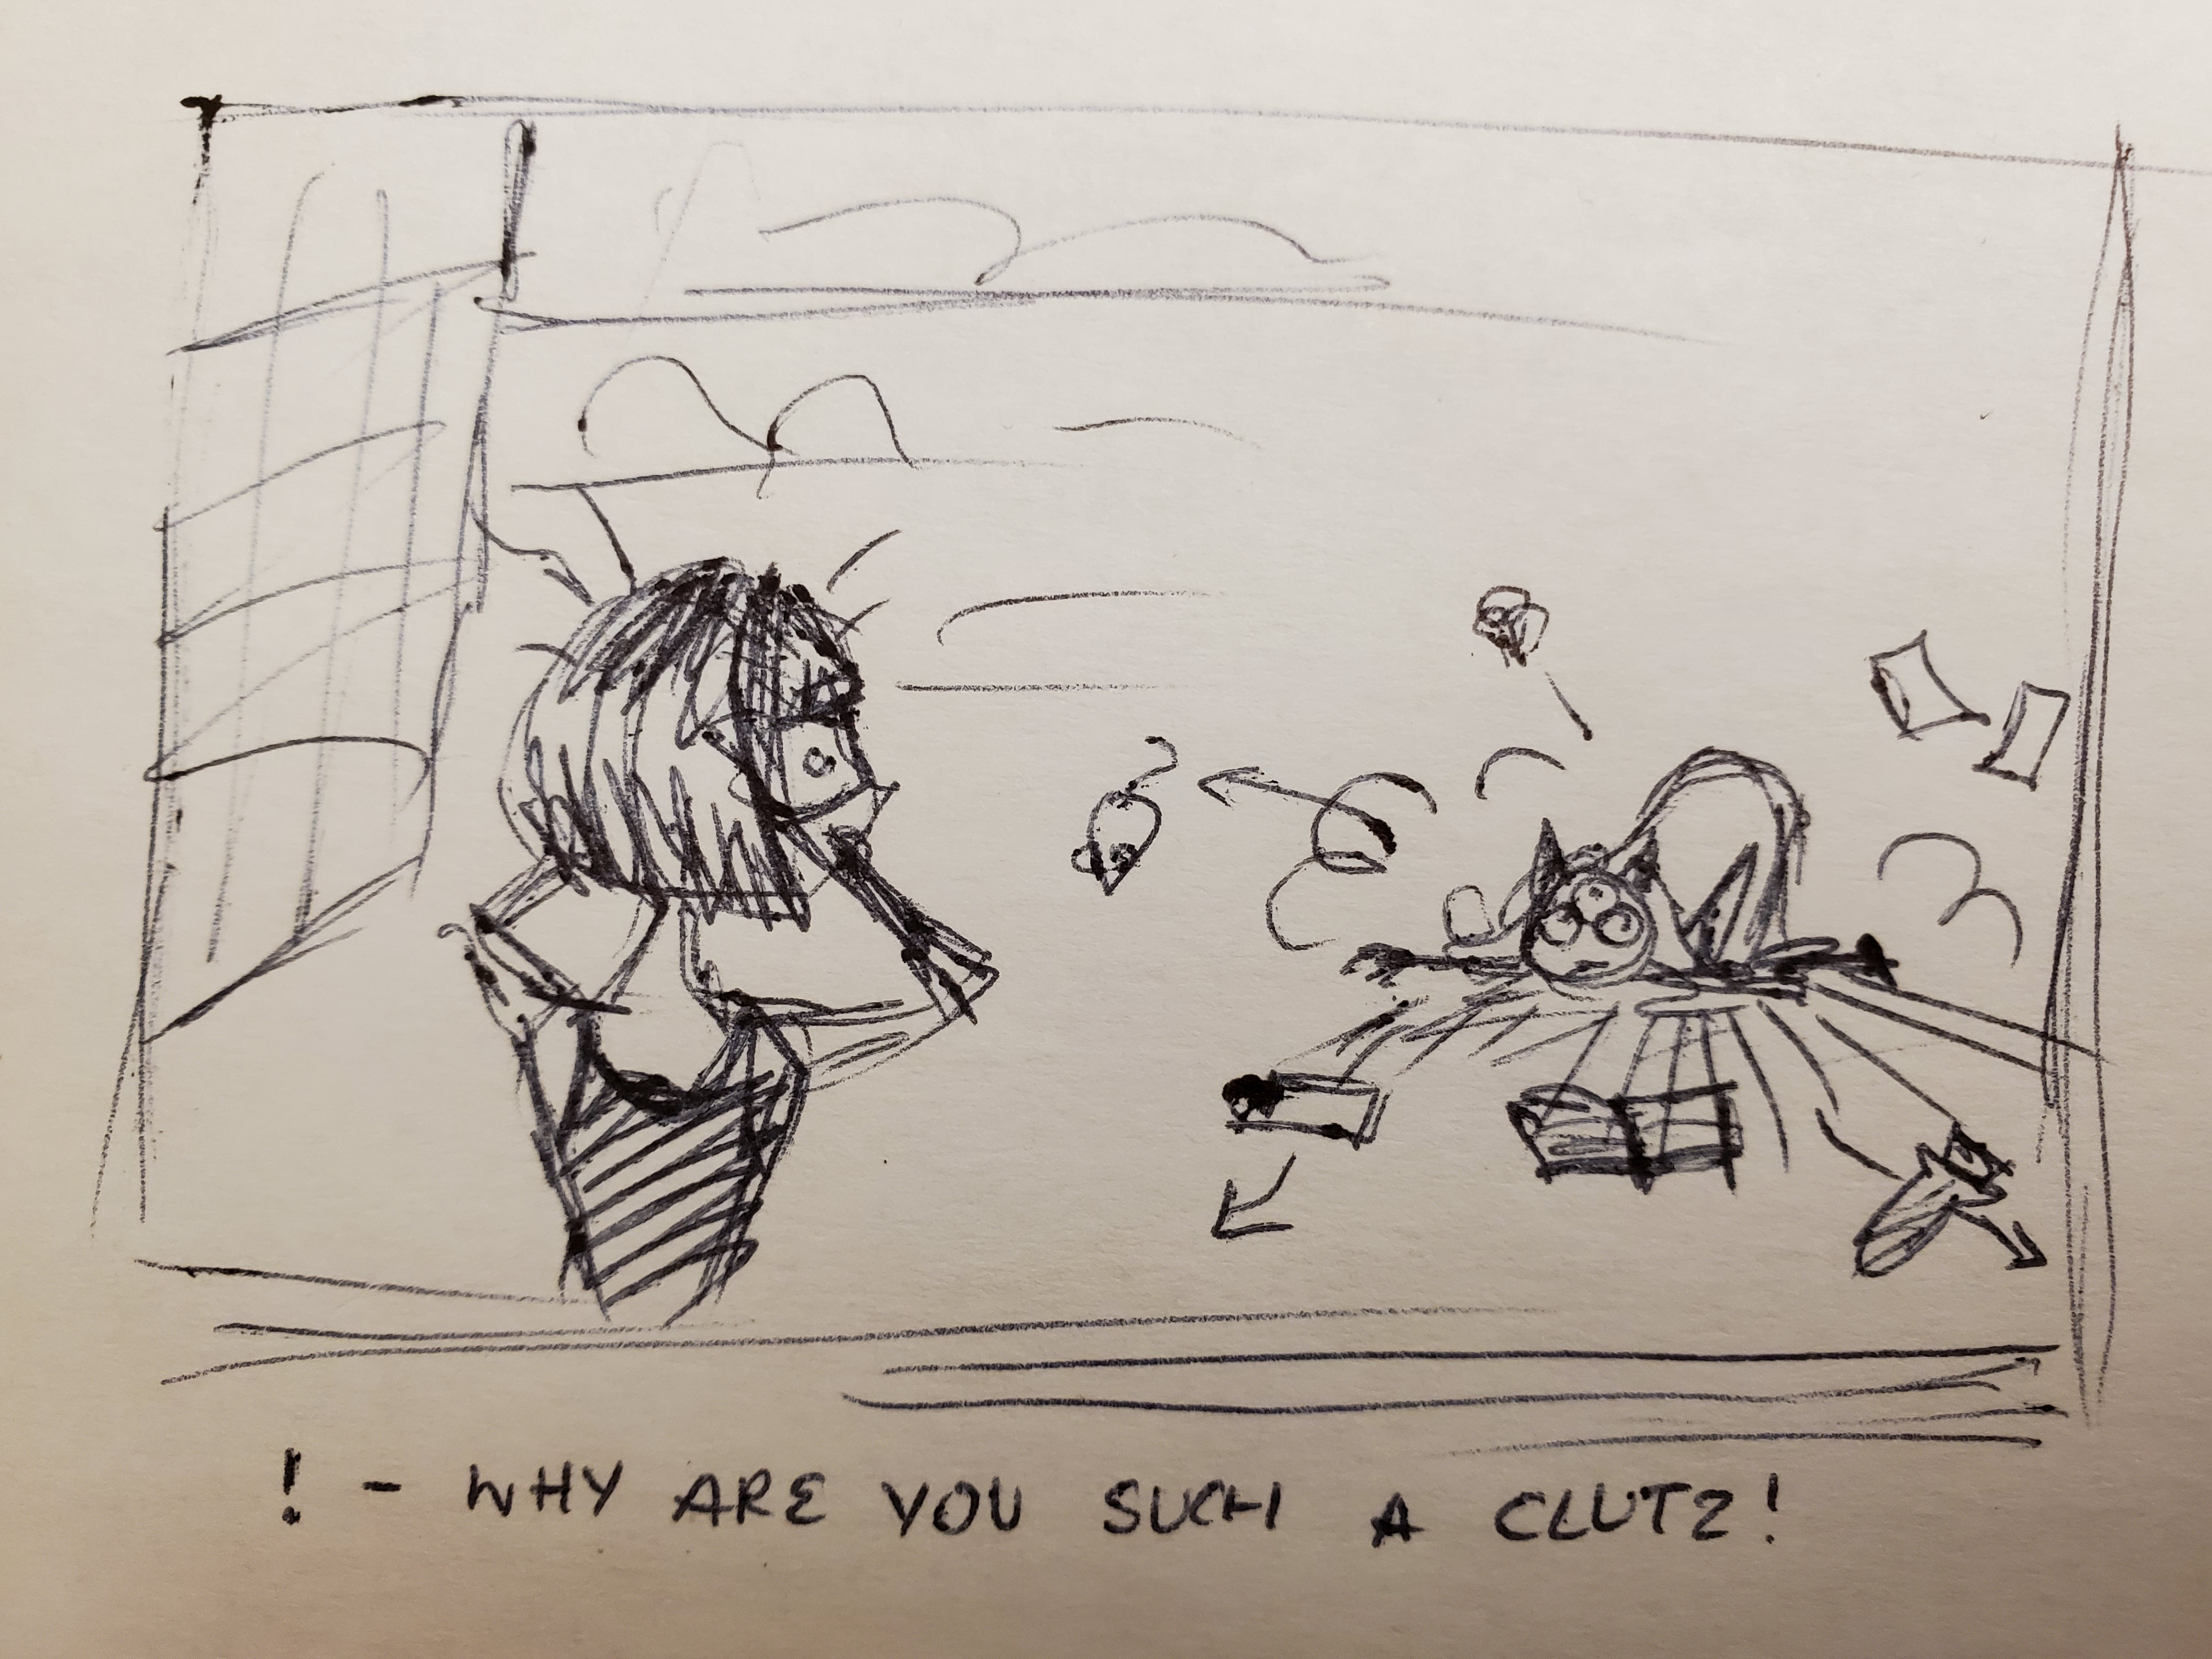 ! - WHY ARE YOU SUCH A CLUTZ!